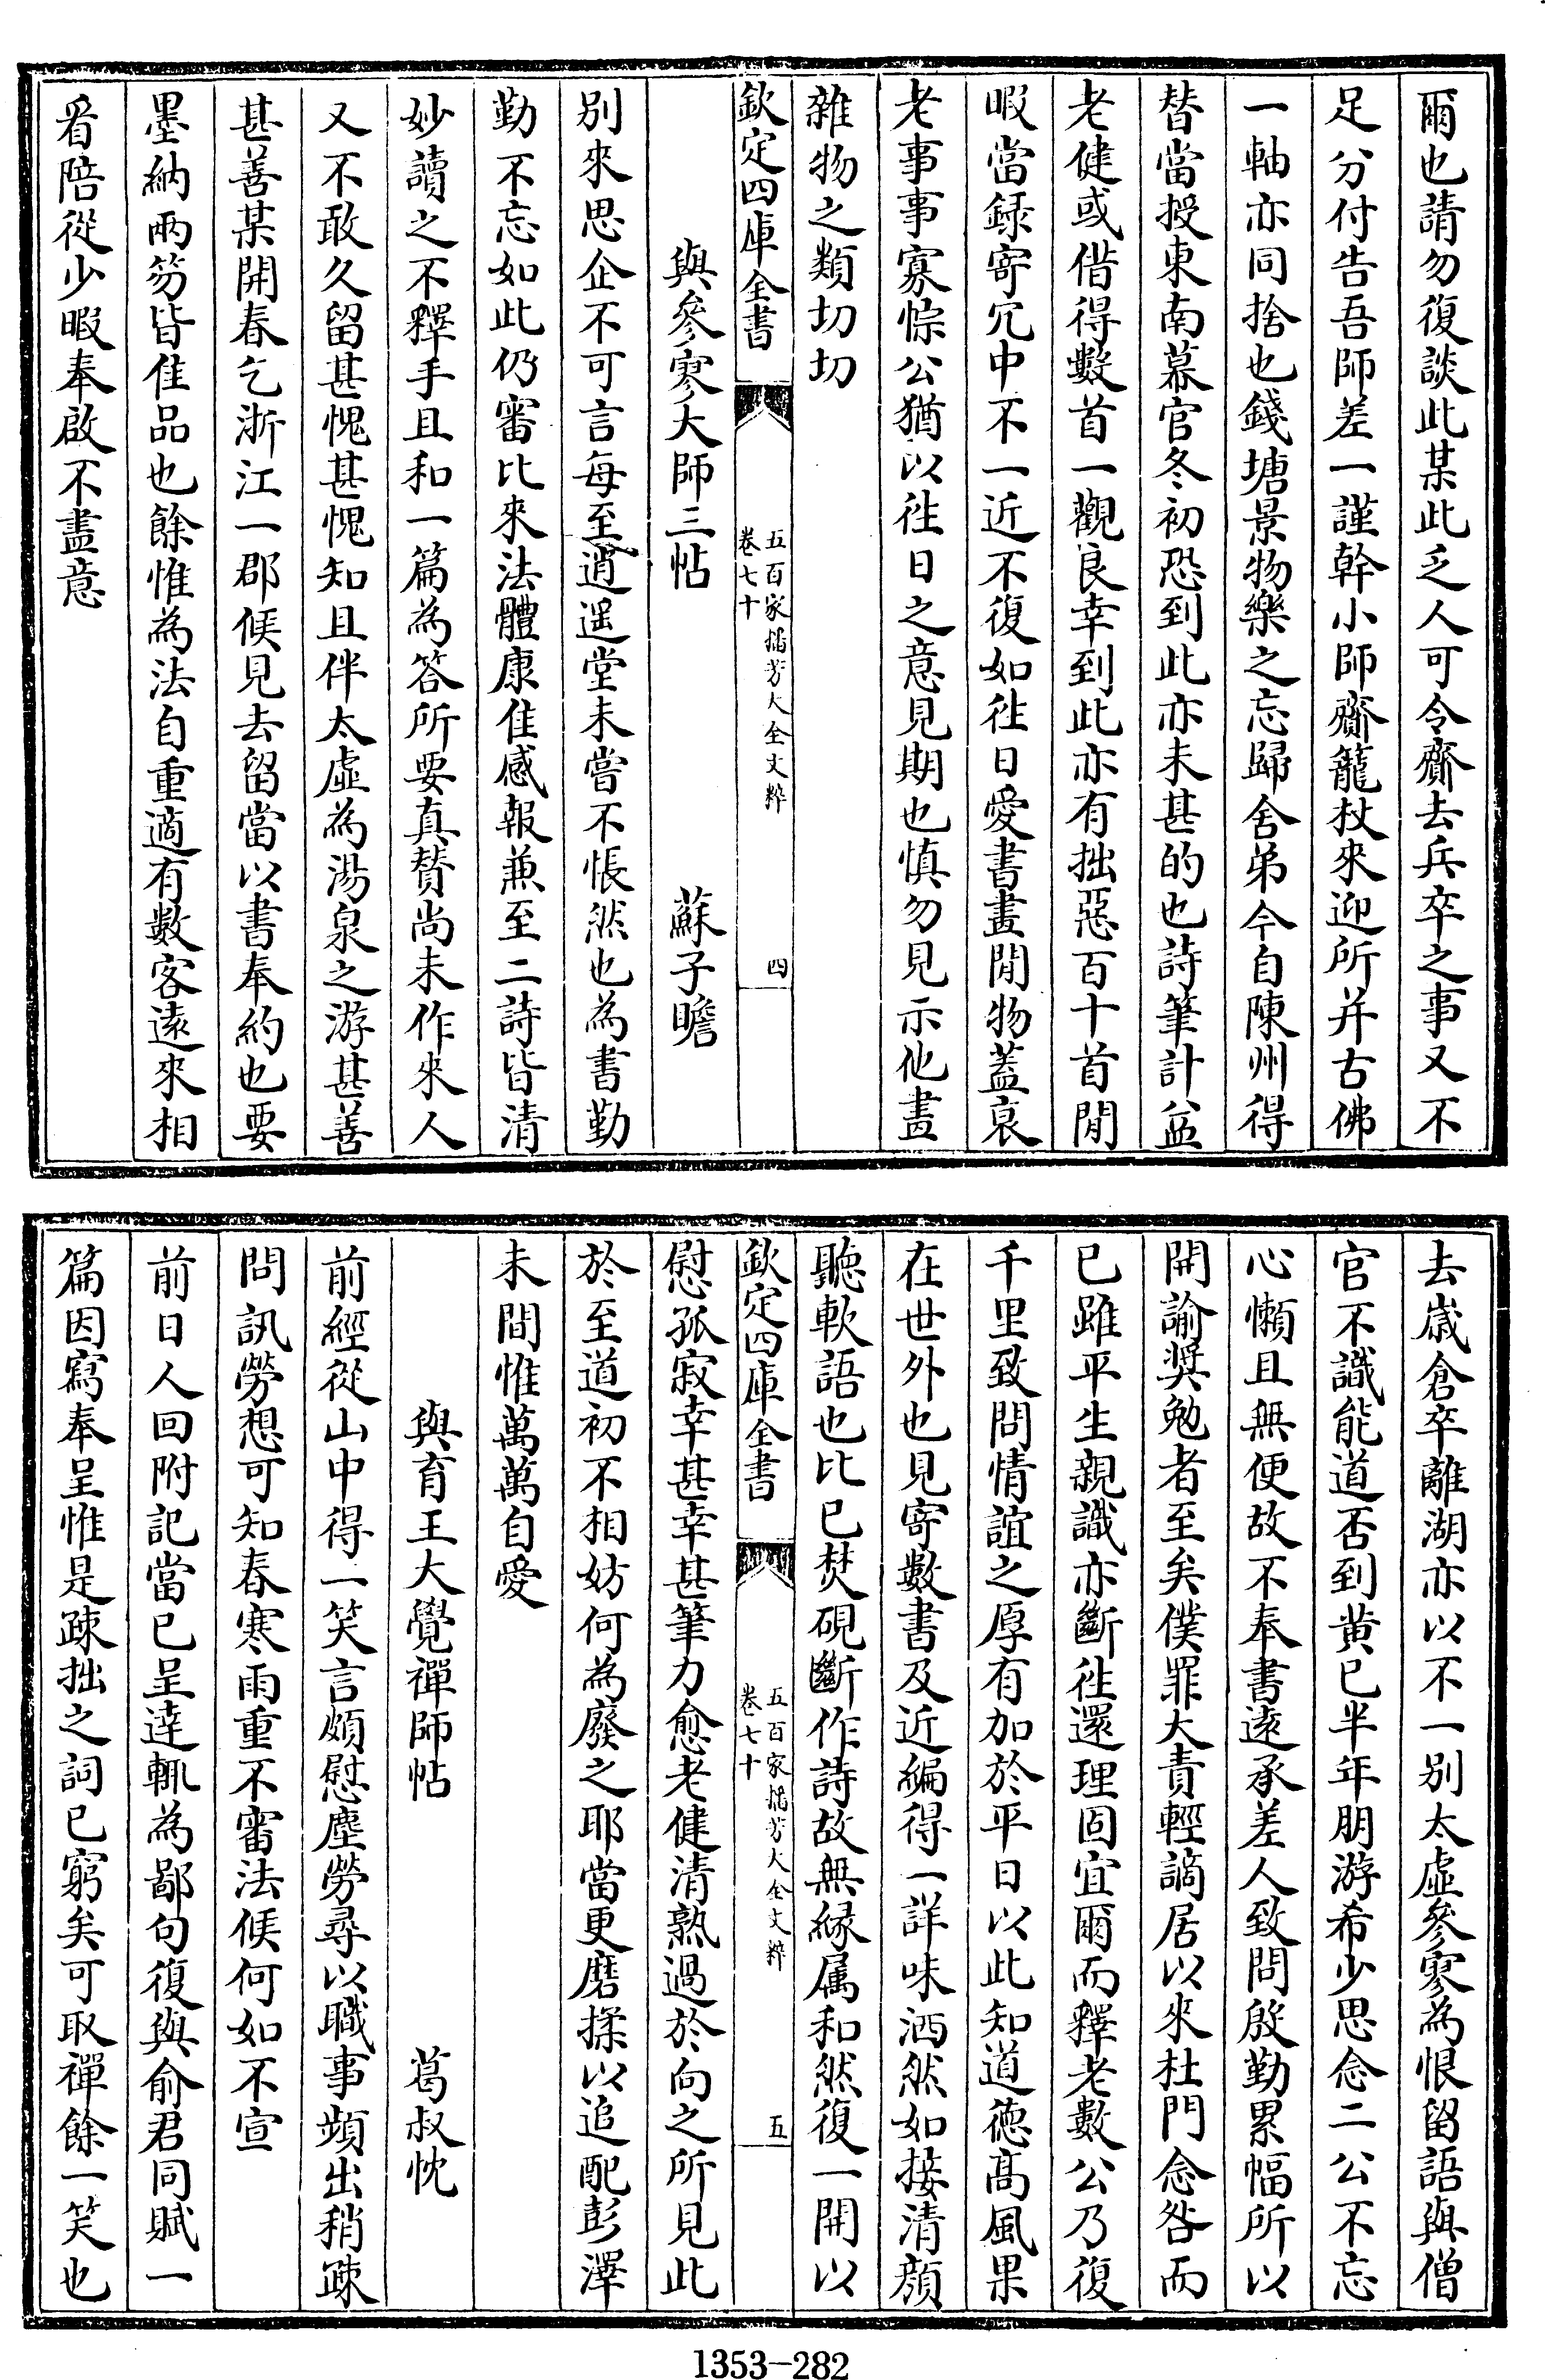 爾也請勿復談此某此乏人可令齎去兵卒之事又不
足分付告吾師差一謹幹小師齎籠杖來迎所并古佛
一軸亦同捨也錢塘景物樂之忘歸舍弟今自陳州得
替當授東南幕官冬初恐到此亦未甚的也詩筆計益
老健或借得數首一觀良幸到此亦有拙惡百十首閒
暇當録寄宂中不一近不復如徃日愛書畫閒物蓋哀
老事事寡悰公猶以徃日之意見期也慎勿見示他畫
雜物之類切切
欽定四庫全書
五百家播芳大全文粹
卷七十
四
與參寥大師三帖 蘇子瞻
別來思企不可言每至逍遥堂未嘗不悵然也為書勤
勤不忘如此仍審比來法體康佳感報兼至二詩皆清
妙讀之不釋手且和一篇為答所要真賛尚未作來人
又不敢久留甚愧甚愧知且伴太虛為湯泉之游甚善
甚善某開春乞浙江一郡候見去留當以書奉約也要
墨納兩笏皆佳品也餘惟為法自重適有數客逺來相
看陪從少暇奉啟不盡意
去嵗倉卒離湖亦以不一別太虛參寥為恨留語與僧
官不識能道否到黄已半年朋游希少思念二公不忘
心懶且無便故不奉書逺承差人致問殷勤累幅所以
開諭奬勉者至矣僕罪大責輕謫居以來杜門念咎而
已雖平生親識亦斷徃還理固宜爾而釋老數公乃復
千里致問情誼之厚有加於平日以此知道徳髙風果
在世外也見寄數書及近編得一詳味洒然如接清顔
聽軟語也比已焚硯斷作詩故無縁属和然復一開以
欽定四庫全書
五百家播芳大全文粹
卷七十
五
慰孤寂幸甚幸甚筆力愈老健清熟過於向之所見此
於至道初不相妨何為廢之耶當更磨揉以追配彭澤
未間惟萬萬自愛
與育王大覺禪師帖 葛叔忱
前經從山中得一笑言頗慰塵勞尋以職事頻出稍踈
問訊勞想可知春寒雨重不審法候何如不宣
前日人回附記當已呈逹輒為鄙句復與俞君同賦一
篇因寫奉呈惟是踈拙之詞已窮矣可取禪餘一笑也
1353-282